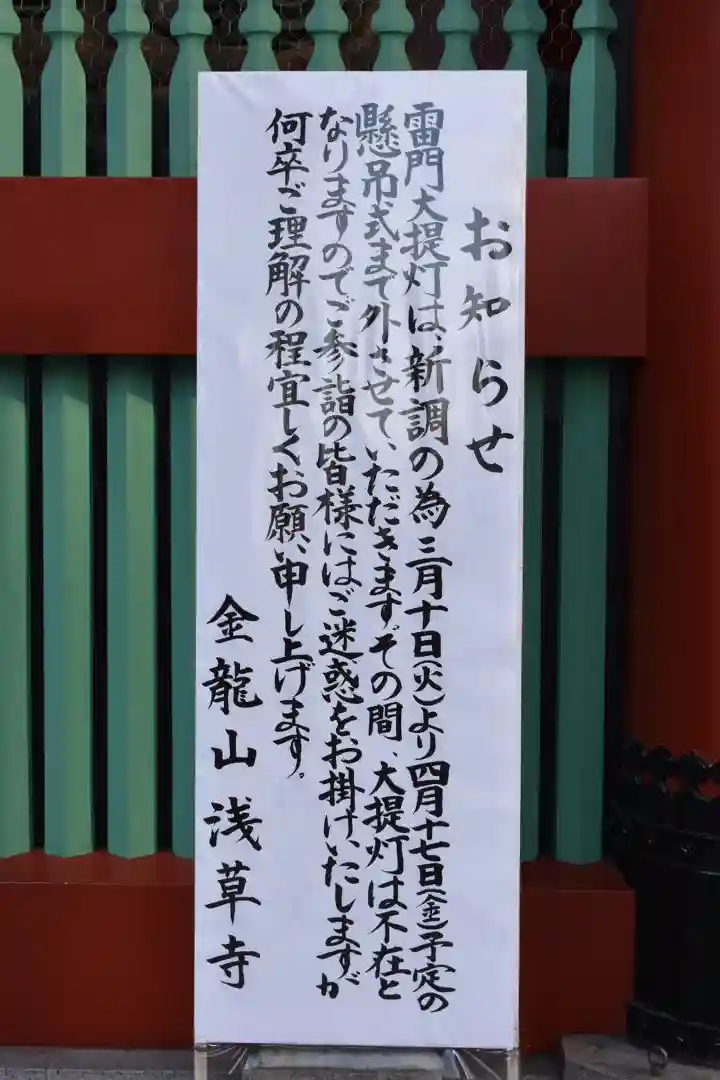 お知らせ
雷門大提灯は、新調の為三月十日(火)より四月十七日(金)予定の
懸吊式まで外させていただきます。その間、大提灯は不在と
なりますのでご参詣の皆様にはご迷惑をお掛けいたしますが
何卒ご理解の程宜しくお願い申し上げます。
金龍山浅草寺